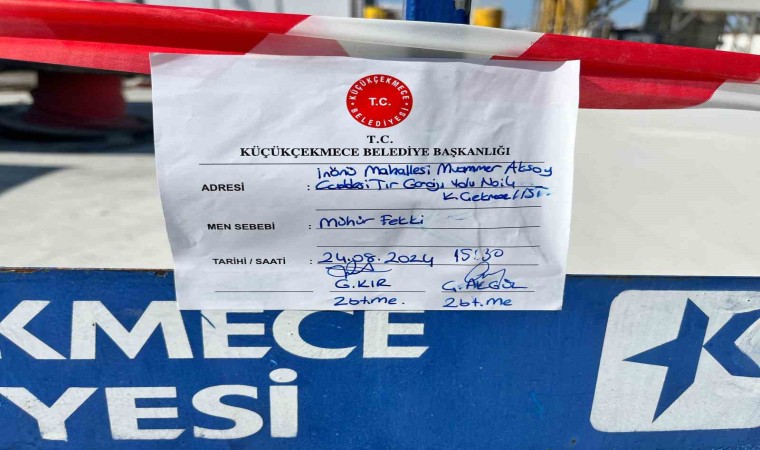 KÜÇÜKÇEKMECE
T.C.
BELEDİYESİ
T.C.
KÜÇÜKÇEKMECE BELEDİYE BAŞKANLIĞI
ADRESİ : İnönü Mahallesi Muammer Aksoy
Caddesi Tır Garajı Yolu No:4
K.Çekmece/İST.
MEN SEBEBİ : Mühür Fekki
TARİHİ / SAATİ : 24.08.2024 15:30
G.KIR G.AKGÜL
Zbt.me. Zbt.me
KMECE
YESİ